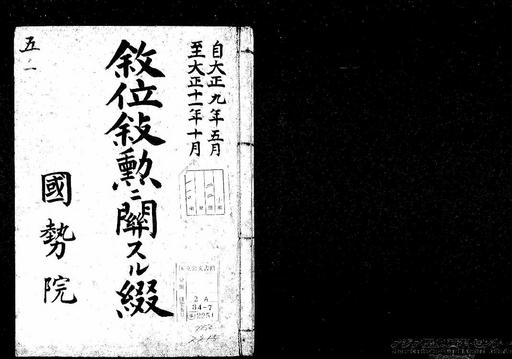 自大正九年五月
至大正十一年十月
敘位敍勲ニ關スル綴
國勢院
五一
2A
34-7
2251